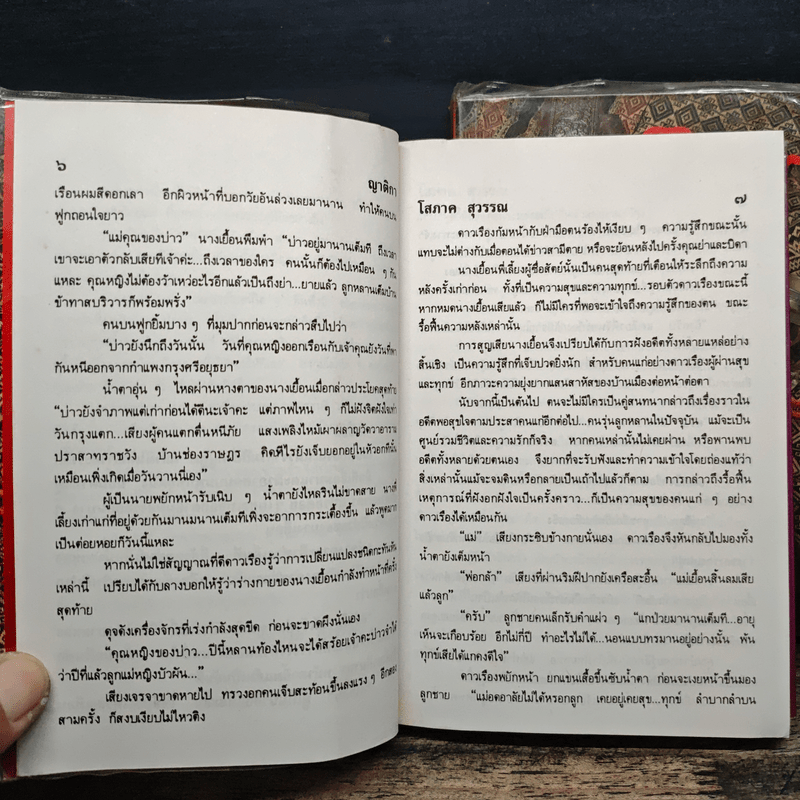 ๖
ญาติกา
เรือนผมสีดอกเลา อีกผิวหน้าที่บอกวัยอันล่วงเลยมานาน ทำให้คนบน
ฟูกถอนใจยาว
“แม่คุณของบ่าว” นางเยื้อนพึมพำ “บ่าวอยู่มานานเต็มที ถึงเวลา
เขาจะเอาตัวกลับเสียทีเจ้าค่ะ...ถึงเวลาของใคร คนนั้นก็ต้องไปเหมือน ๆ กัน
แหละ คุณหญิงไม่ต้องว้าเหว่อะไรอีกแล้วเป็นถึงย่า...ยายแล้ว ลูกหลานเต็มบ้าน
ข้าทาสบริวารก็พร้อมพรั่ง”
คนบนฟูกยิ้มบาง ๆ ที่มุมปากก่อนจะกล่าวสืบไปว่า
“บ่าวยังนึกถึงวันนั้น วันที่คุณหญิงออกเรือนกับเจ้าคุณยังวันที่พา
กันหนีออกจากกำแพงกรุงศรีอยุธยา”
น้ำตาอุ่น ๆ ไหลผ่านหางตาของนางเยื้อนเมื่อกล่าวประโยคสุดท้าย
“บ่าวยังจำภาพแต่เก่าก่อนได้ดีนะเจ้าคะ แต่ภาพไหน ๆ ก็ไม่ฝังจิตฝังใจเท่า
วันกรุงแตก...เสียงผู้คนแตกตื่นหนีภัย แสงเพลิงไหม้เผาผลาญวัดวาอาราม
ปราสาทราชวัง บ้านช่องราษฎร คิดทีไรยังเจ็บยอกอยู่ในหัวอกที่นั่น
เหมือนเพิ่งเกิดเมื่อวันวานนี่เอง”
ผู้เป็นนายพยักหน้ารับเนิบ ๆ น้ำตายังไหลรินไม่ขาดสาย นางพี่
เลี้ยงเก่าแก่ที่อยู่ด้วยกันมานมนานเต็มทีเพิ่งจะอาการกระเตื้องขึ้น แล้วพูดมาก
เป็นต่อยหอยก็วันนี้แหละ
หากนั่นไม่ใช่สัญญาณที่ดีดาวเรืองรู้ว่าการเปลี่ยนแปลงชนิดกะทันหัน
เหล่านี้ เปรียบได้กับลางบอกให้รู้ว่าร่างกายของนางเยื้อนกำลังทำหน้าที่ครั้ง
สุดท้าย
ดุจดังเครื่องจักรที่เร่งกำลังสุดขีด ก่อนจะขาดผึงนั่นเอง
“คุณหญิงของบ่าว...ปีนี้หลานท้องไหนจะได้สร้อยเจ้าคะบ่าวจำได้
ว่าปีที่แล้วลูกแม่หญิงบัวผัน...”
เสียงเจรจาขาดหายไป ทรวงอกคนเจ็บสะท้อนขึ้นลงแรง ๆ อีกสอง
สามครั้ง ก็สงบเงียบไม่ไหวติง
โสภาค สุวรรณ
๗
ดาวเรืองก้มหน้ากับฝ่ามือตนร้องไห้เงียบ ๆ ความรู้สึกขณะนั้น
แทบจะไม่ต่างกับเมื่อตอนได้ข่าวสามีตาย หรือจะย้อนหลังไปครั้งคุณย่าและบิดา
นางเยื้อนพี่เลี้ยงผู้ซื่อสัตย์นั้นเป็นคนสุดท้ายที่เตือนให้ระลึกถึงความ
หลังครั้งเก่าก่อน ทั้งที่เป็นความสุขและความทุกข์...รอบตัวดาวเรืองขณะนี้
หากหมดนางเยื้อนเสียแล้ว ก็ไม่มีใครที่พอจะเข้าใจถึงความรู้สึกของตน ขณะ
รื้อฟื้นความหลังเหล่านั้น
การสูญเสียนางเยื้อนจึงเปรียบได้กับการฝังอดีตทั้งหลายแหล่อย่าง
สิ้นเชิง เป็นความรู้สึกที่เจ็บปวดยิ่งนัก สำหรับคนแก่อย่างดาวเรืองผู้ผ่านสุข
และทุกข์ อีกภาวะความยุ่งยากแสนสาหัสของบ้านเมืองต่อหน้าต่อตา
นับจากนี้เป็นต้นไป ตนจะไม่มีใครเป็นคู่สนทนากล่าวถึงเรื่องราวใน
อดีตพอสุขใจตามประสาคนแก่อีกต่อไป...คนรุ่นลูกหลานในปัจจุบัน แม้จะเป็น
ศูนย์รวมชีวิตและความรักก็จริง หากคนเหล่านั้นไม่เคยผ่าน หรือพานพบ
อดีตทั้งหลายด้วยตนเอง จึงยากที่จะรับฟังและทำความเข้าใจโดยถ่องแท้ว่า
สิ่งเหล่านั้นแม้จะจมดินหรือกลายเป็นเถ้าไปแล้วก็ตาม การกล่าวถึงรื้อฟื้น
เหตุการณ์ที่ฝังอกฝังใจเป็นครั้งคราว...ก็เป็นความสุขของคนแก่ ๆ อย่าง
ดาวเรืองได้เหมือนกัน
“แม่” เสียงกระซิบข้างกายนั่นเอง ดาวเรืองจึงหันกลับไปมองทั้ง
น้ำตายังเต็มหน้า
“พ่อกล้า” เสียงที่ผ่านริมฝีปากยังเครือสะอื้น “แม่เยื้อนสิ้นลมเสีย
แล้วลูก”
“ครับ” ลูกชายคนเล็กรับคำแผ่ว ๆ “แกป่วยมานานเต็มที...อายุ
เห็นจะเกือบร้อย อีกไม่กี่ปี ทำอะไรไม่ได้...นอนแบบทรมานอยู่อย่างนั้น พ้น
ทุกข์เสียได้แกคงดีใจ”
ดาวเรืองพยักหน้า ยกแขนเสื้อขึ้นซับน้ำตา ก่อนจะเงยหน้าขึ้นมอง
ลูกชาย “แม่อดอาลัยไม่ได้หรอกลูก เคยอยู่เคยสุข...ทุกข์ ลำบากลำบน